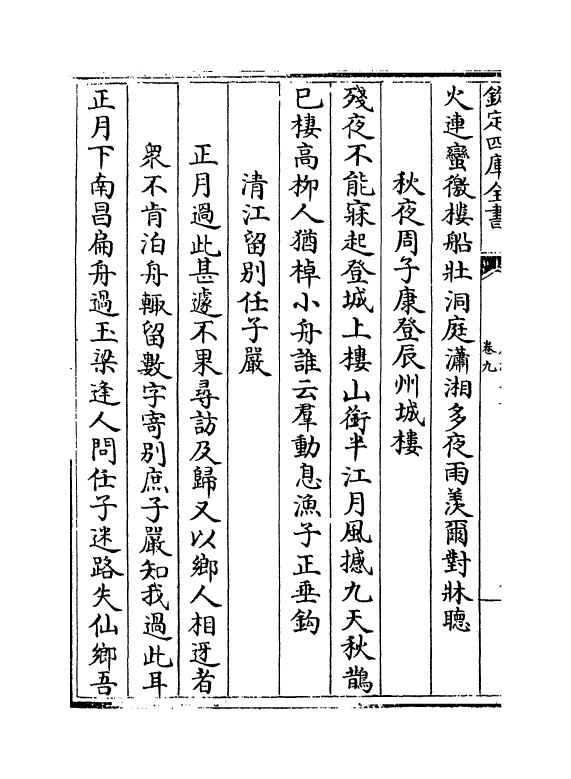 欽定四庫全書
卷九
火連蠻徼樓船壯洞庭瀟湘多夜雨羡爾對牀聽
秋夜周子康登辰州城樓
殘夜不能寐起登城上樓山銜半江月風撼九天秋鵲
已棲高柳人猶棹小舟誰云羣動息漁子正垂鈎
清江留别任子嚴
正月過此甚遽不果尋訪及歸又以鄉人相迓者
衆不肯泊舟輙留數字寄别庶子嚴知我過此耳
正月下南昌扁舟過玉梁逢人問任子迷路失仙鄉吾